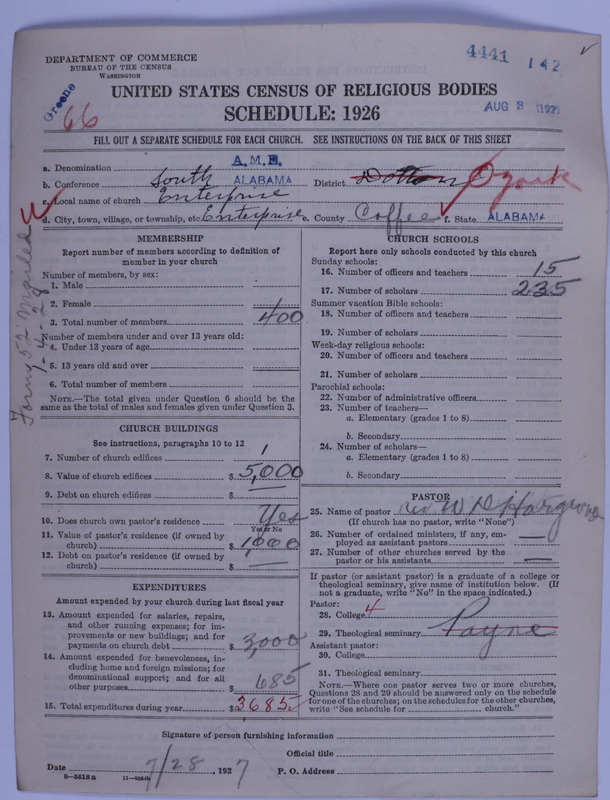 4441 142
DEPARTMENT OF COMMERCE
BUREAU OF THE CENSUS
WASHINGTON
Greene
66
UNITED STATES CENSUS OF RELIGIOUS BODIES
SCHEDULE: 1926
AUG 3 1927
FILL OUT A SEPARATE SCHEDULE FOR EACH CHURCH. SEE INSTRUCTIONS ON THE BACK OF THIS SHEET
a. Denomination A.M.E.
b. Conference South ALABAMA District Ozark
c. Local name of church Enterprise
d. City, town, village, or township, etc. Enterprise e. County Coffee f. State ALABAMA
Form 52 Mailed
1-4-28
MEMBERSHIP
Report number of members according to definition of
member in your church
Number of members, by sex:
1. Male
2. Female
3. Total number of members 400
Number of members under and over 13 years old:
4. Under 13 years of age
5. 13 years old and over
6. Total number of members
NOTE.—The total given under Question 6 should be the
same as the total of males and females given under Question 3.
CHURCH BUILDINGS
See instructions, paragraphs 10 to 12
7. Number of church edifices 1
8. Value of church edifices $ 5,000
9. Debt on church edifices $ —
10. Does church own pastor's residence Yes
Yes or No
11. Value of pastor's residence (if owned by
church) $ 1000
12. Debt on pastor's residence (if owned by
church) $ —
EXPENDITURES
Amount expended by your church during last fiscal year
13. Amount expended for salaries, repairs,
and other running expenses; for im-
provements or new buildings; and for
payments on church debt $ 3,000
14. Amount expended for benevolences, in-
cluding home and foreign missions; for
denominational support; and for all
other purposes $ 685
15. Total expenditures during year $ 3685
CHURCH SCHOOLS
Report here only schools conducted by this church
Sunday schools:
16. Number of officers and teachers 15
17. Number of scholars 235
Summer vacation Bible schools:
18. Number of officers and teachers
19. Number of scholars
Week-day religious schools:
20. Number of officers and teachers
21. Number of scholars
Parochial schools:
22. Number of administrative officers
23. Number of teachers—
a. Elementary (grades 1 to 8)
b. Secondary
24. Number of scholars—
a. Elementary (grades 1 to 8)
b. Secondary
PASTOR
25. Name of pastor Rev. W D Hargrove
(If church has no pastor, write "None")
26. Number of ordained ministers, if any, em-
ployed as assistant pastors —
27. Number of other churches served by the
pastor or his assistants —
If pastor (or assistant pastor) is a graduate of a college or
theological seminary, give name of institution below. (If
not a graduate, write "No" in the space indicated.)
Pastor:
28. College 4
29. Theological seminary Payne
Assistant pastor:
30. College
31. Theological seminary
NOTE.—Where one pastor serves two or more churches,
Questions 28 and 29 should be answered only on the schedule
for one of the churches; on the schedules for the other churches,
write "See schedule for church."
Signature of person furnishing information
Official title
Date 7/28, 1927 P. O. Address